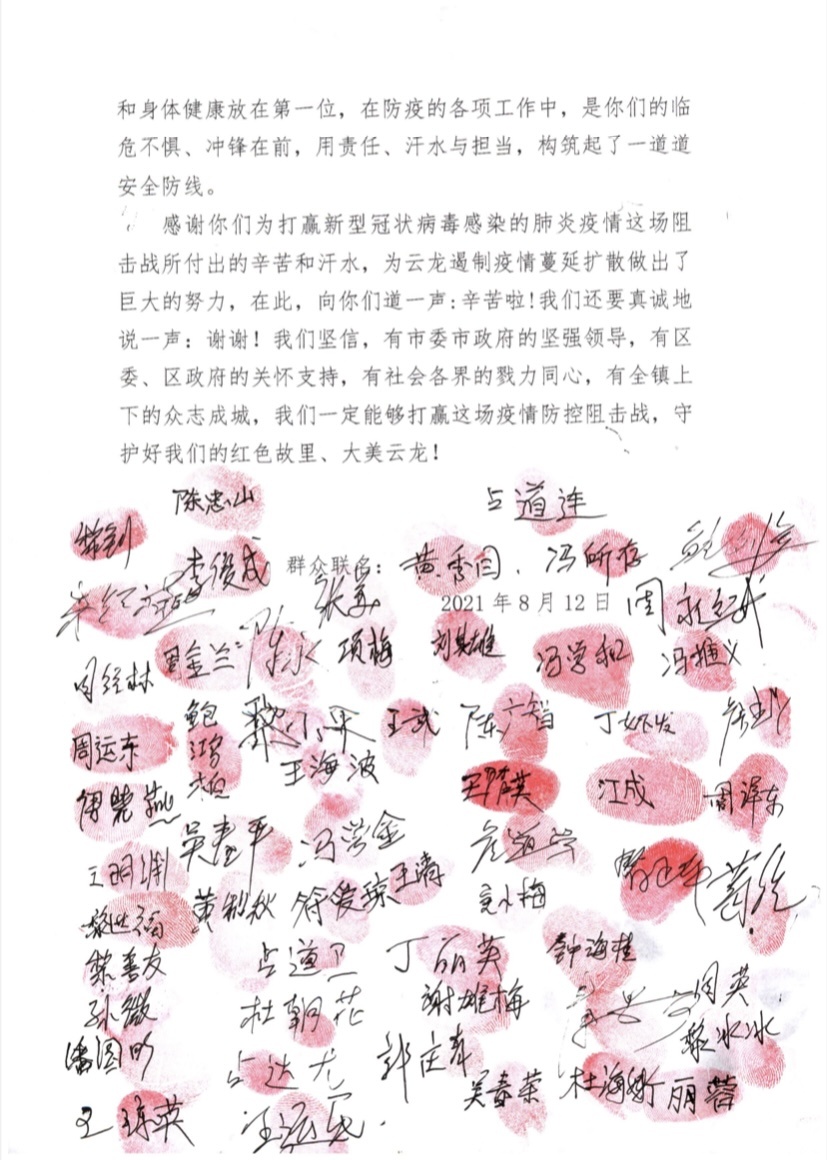 和身体健康放在第一位，在防疫的各项工作中，是你们的临
危不惧、冲锋在前，用责任、汗水与担当，构筑起了一道道
安全防线。
感谢你们为打赢新型冠状病毒感染的肺炎疫情这场阻
击战所付出的辛苦和汗水，为云龙遏制疫情蔓延扩散做出了
巨大的努力，在此，向你们道一声:辛苦啦!我们还要真诚地
说一声：谢谢！我们坚信，有市委市政府的坚强领导，有区
委、区政府的关怀支持，有社会各界的戮力同心，有全镇上
下的众志成城，我们一定能够打赢这场疫情防控阻击战，守
护好我们的红色故里、大美云龙！
陈忠山 占道连
李俊成 群众联名： 黄秀闫、冯所存
张美 2021年8月12日
周金兰 陈永 项梅 刘其雄 冯学和 冯推义
周经林
鲍鸿柏 王武 陈广智
周运东 王海波 江成 周泽东
吴春平 冯学金
王明渊 黄利秋 符爱琼 王涛
黎世福
黎善友 占道卫 丁丽英 钟海桂
孙薇 杜朝花 谢雄梅 周英
黎冰冰
占达尤
王琼英 吴春荣 杜海娇 丽蓉